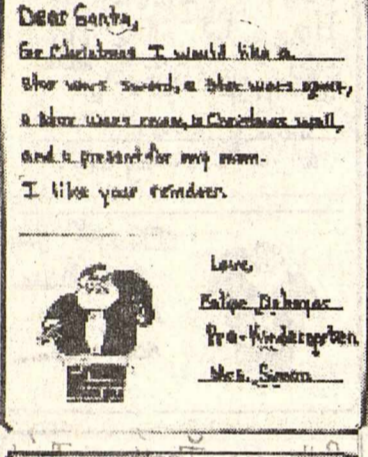 Dear Santa,
For Christmas I would like a
Star wars sword, a Star wars
a Star wars room, a Christmas wall,
and a present for my mom.
I like your reindeer.
Love,
Felipe
Pre-Kindergarten
Mrs. Simon